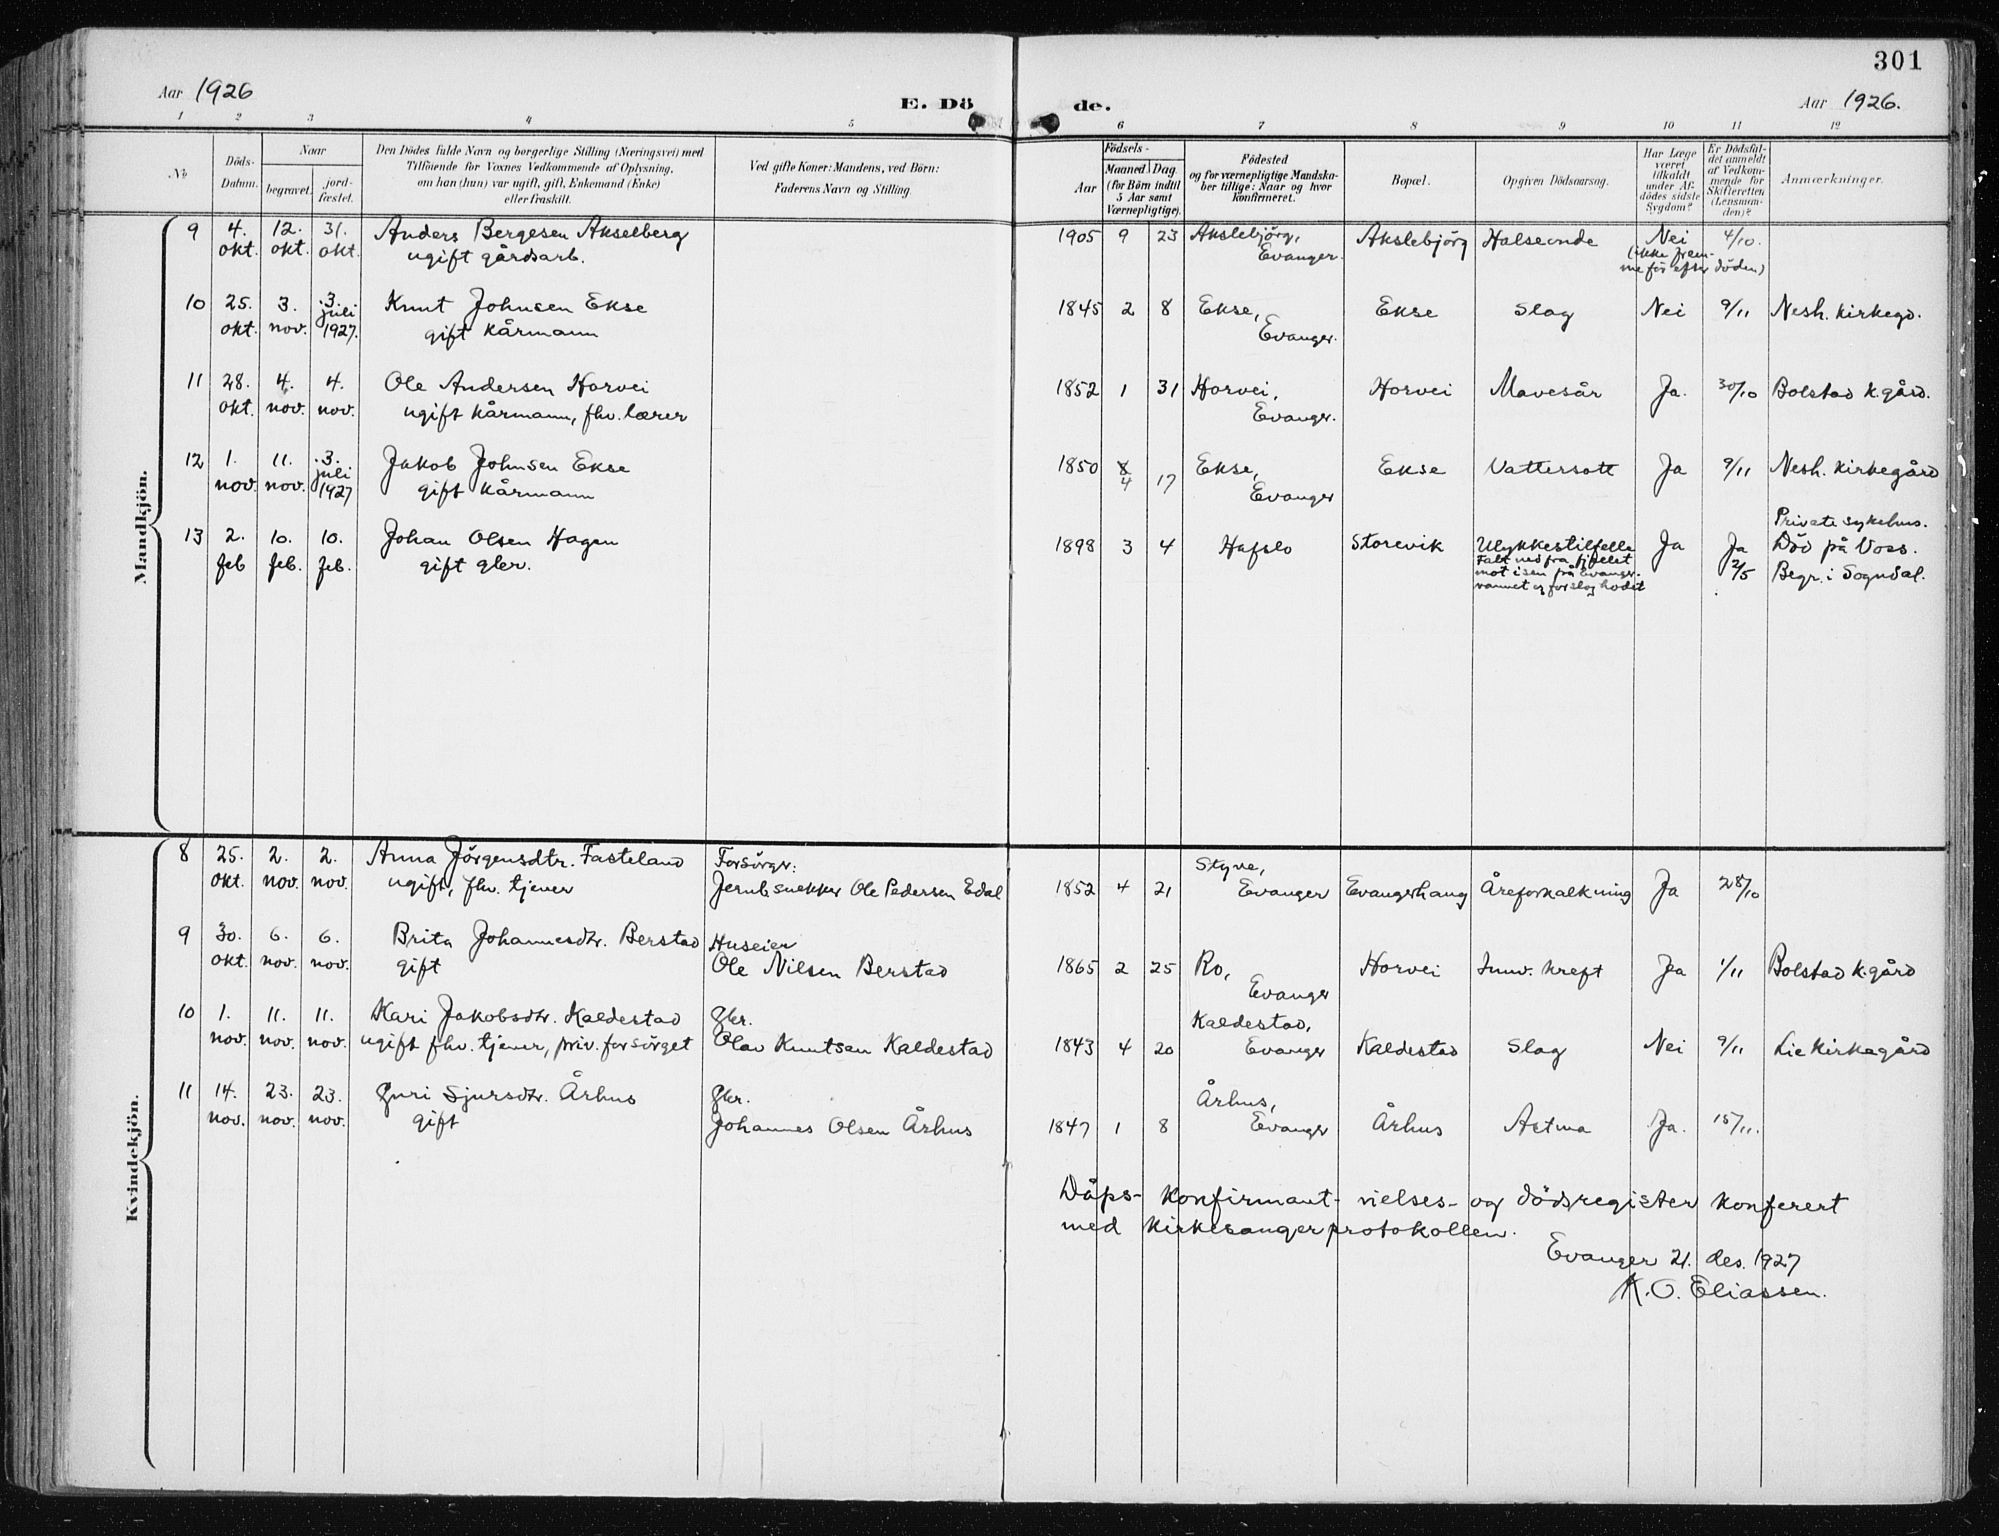 301
Aar 1926
E. Dö de.
Aar 1926.
1 2 3 4 5 6 7 8 9 10 11 12
No.
Döds-
Datum.
Naar
begravet.
jord-
fæstet.
Den Dödes fulde Navn og borgerlige Stilling (Næringsvei) med
Tilföiende for Voxnes Vedkommende af Oplysning,
om han (hun) var ugift, gift, Enkemand (Enke)
eller fraskilt.
Ved gifte Koner: Mandens, ved Börn:
Faderens Navn og Stilling.
Födsels-
Aar
Maaned.
Dag
(for Börn indtil
5 Aar samt
Værnepligtige).
Födested
og for værnepligtige Mandska-
ber tillige: Naar og hvor
konfirmeret.
Bopæl.
Opgiven Dödsaarsag.
Har Læge
været
tilkaldt
under Af-
dödes sidste
Sygdom?
Er Dödsfal-
det anmeldt
af Vedkom-
mende for
Skifteretten
(Lensman-
den)?
Anmærkninger.
Mandkjön.
9 4. 12. 31. Anders Bergesen Akselberg 1905 9 23 Akslebjörg, Akslebjörg Halseonde Nei 4/10.
okt. okt. okt. ugift gårdsarb. Evanger. (ikke frem-
me för efter döden)
10 25. 3. 3. Knut Johnsen Ekse 1845 2 8 Ekse, Ekse Slag Nei 9/11 Nesh. kirkegd.
okt. nov. juli 1927. gift kårmann Evanger.
11 28. 4. 4. Ole Andersen Horvei 1852 1 31 Horvei, Horvei Mavesår Ja. 30/10 Bolstad k.gård.
okt. nov. nov. ugift kårmann, fhv. lærer Evanger.
12 1. 11. 3. Jakob Johnsen Ekse 1850 8 4 17 Ekse, Ekse Vattersott Ja 9/11 Nesh. kirkegård
nov. nov. juli 1927 gift kårmann Evanger
Private sykehus.
13 2. 10. 10. Johan Olsen Hagen 1898 3 4 Hafslo Storevik Ulykkestilfelle Ja Ja Död på Voss.
feb feb. feb. gift gbr. Falt ned fra fjellet 2/5 Begr. i Sogndal.
mot isen på Evanger-
vannet og forslog hodet
Kvindekjön.
8 25. 2. 2. Anna Jörgensdtr. Fasteland Forsörger: Styve,
okt. nov. nov. ugift, fhv. tjener Jernbsnekker Ole Pedersen Edal 1852 4 21 Evanger Evangerhaug Åreforkalkning Ja 28/10
9 30. 6. 6. Brita Johannesdtr. Berstad Huseier
okt. nov. nov. gift Ole Nilsen Berstad 1865 2 25 Ro, Horvei Innv. kreft Ja 1/11 Bolstad k.gård
Evanger
10 1. 11. 11. Kari Jakobsdtr. Kaldestad Gbr. Kaldestad,
nov. nov. nov. ugift fhv. tjener, priv. forsörget Olav Knutsen Kaldestad 1843 4 20 Evanger Kaldestad Slag Nei 9/11 Lie kirkegård
11 14. 23. 23. Guri Sjursdtr. Århus Gbr. Århus,
nov. nov. nov. gift Johannes Olsen Århus 1847 1 8 Evanger Århus Astma Ja. 15/11.
Dåps- konfirmant- vielses- og dödsregister konferert
med kirkesangerprotokollen.
Evanger 21. des. 1927
K. O. Eliassen.